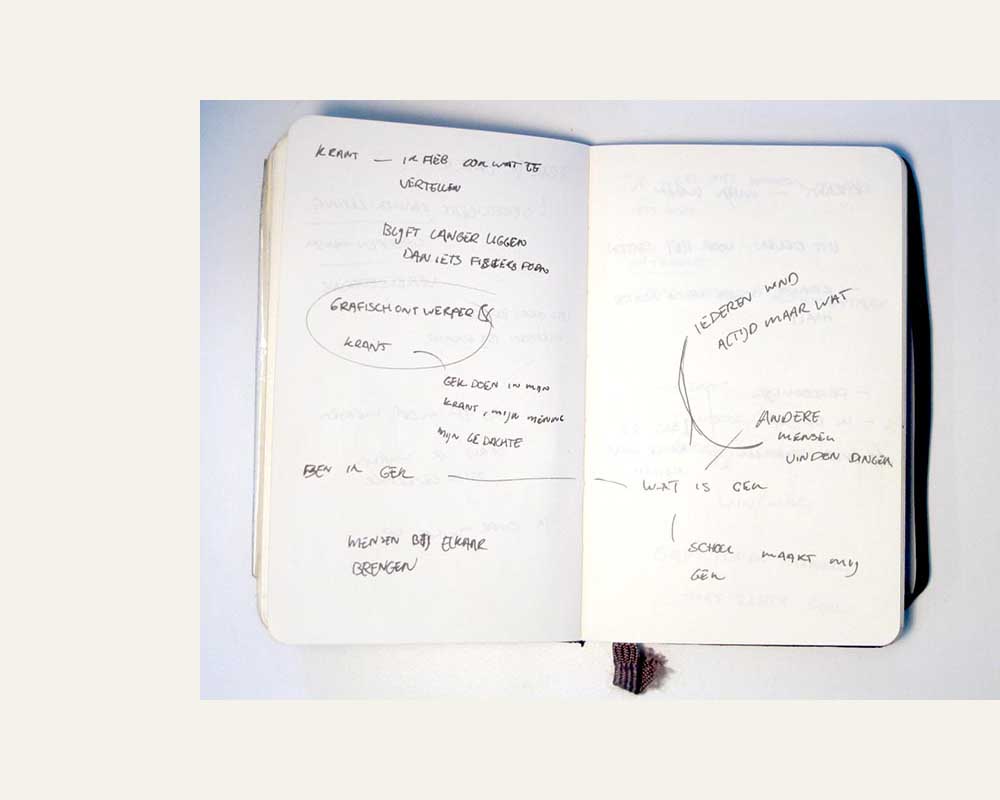 KRANT — IK HEB OOK WAT TE
VERTELLEN
BLIJFT LANGER LIGGEN
DAN IETS
GRAFISCH ONTWERPER
KRANT
GEK DOEN IN MIJN
KRANT, MIJN MENING
MIJN GEDACHTE
BEN IK GEK
MENSEN BIJ ELKAAR
BRENGEN
IEDEREEN VIND
ALTIJD MAAR WAT
ANDERE
MENSEN
VINDEN DINGEN
WAT IS GEK
SCHOOL MAAKT MIJ
GEK